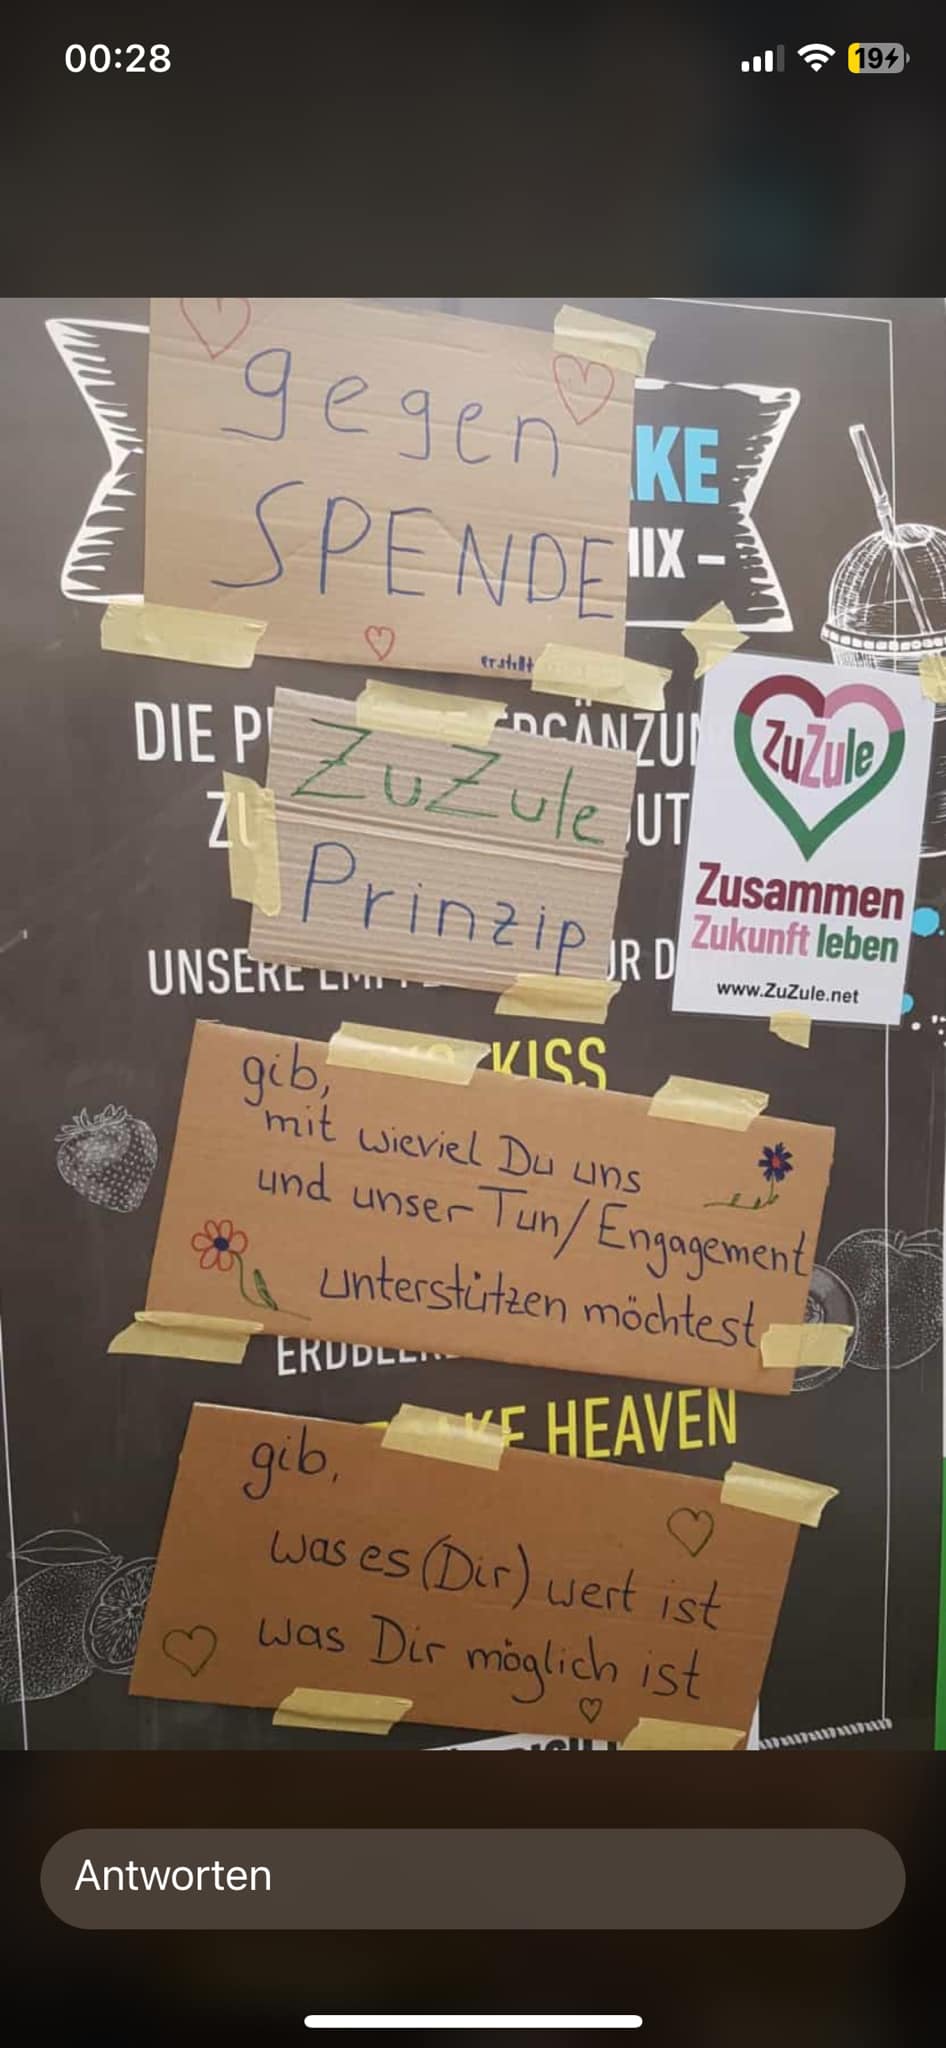 00:28
19
gegen
SPENDE
erstellt
KE
MIX –
DIE
ZuZule
Prinzip
ZuZule
Zusammen
Zukunft leben
www.ZuZule.net
UNSERE
KISS
gib,
mit wieviel Du uns
und unser Tun/Engagement
unterstützen möchtest
HEAVEN
gib,
was es (Dir) wert ist
was Dir möglich ist
Antworten